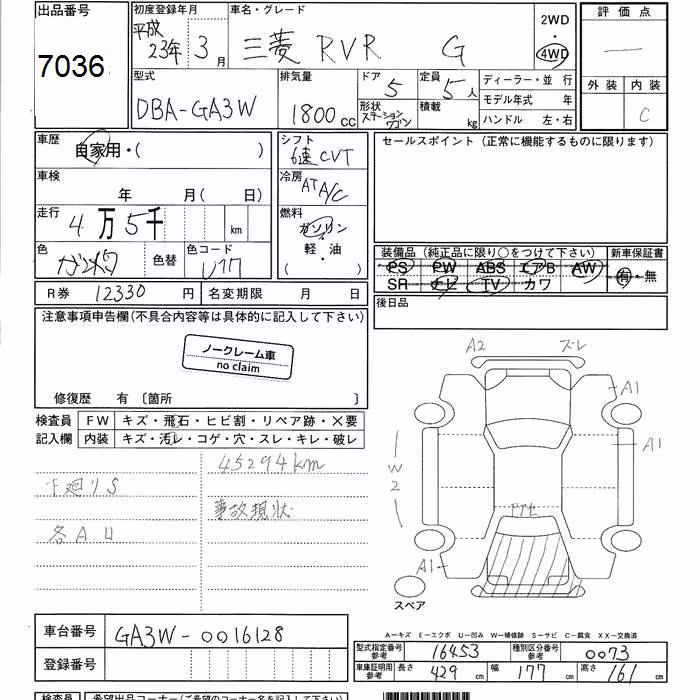 出品番号 初度登録年月 車名・グレード 2WD・4WD 評価点
7036 平成23年3月 三菱 RVR G
型式 排気量 ドア 定員 ディーラー・並行 外装 内装
DBA-GA3W 1800cc 5 5人 モデル年式 年 C
形状 ステーションワゴン 積載 kg ハンドル 左・右
車歴 自家用・( ) シフト 6速CVT セールスポイント(正常に機能するものに限ります)
車検 年 月(日) 冷房 AT A/C
走行 4万5千 km 燃料 ガソリン・軽・油( )
色 色替 色コード U17 装備品(純正品に限り○をつけて下さい) 新車保証書
PS PW ABS エアB AW 有・無
SR ナビ TV カワ
R券 12330円 名変期限 月 日 後日品
注意事項申告欄(不具合内容等は具体的に記入して下さい)
ノークレーム車
no claim
修復歴 有 〔箇所 〕
検査員 FW キズ・飛石・ヒビ割・リペア跡・×要
記入欄 内装 キズ・汚レ・コゲ・穴・スレ・キレ・破レ
45294km
下廻りS
事故現状
各A.U
A2 ズレ
A1
A1
W2
A1
スペア
車台番号 GA3W-0016128
登録番号
A-キズ E-エクボ U-凹み W-補修跡 S-サビ C-腐食 XX-交換済
型式指定番号 参考 16453 種別区分番号 参考 0073
車庫証明用 参考 長さ 429cm 幅 177cm 高さ 161cm
検査員 希望出品コーナー(ご希望のコーナー名を記入下さい)